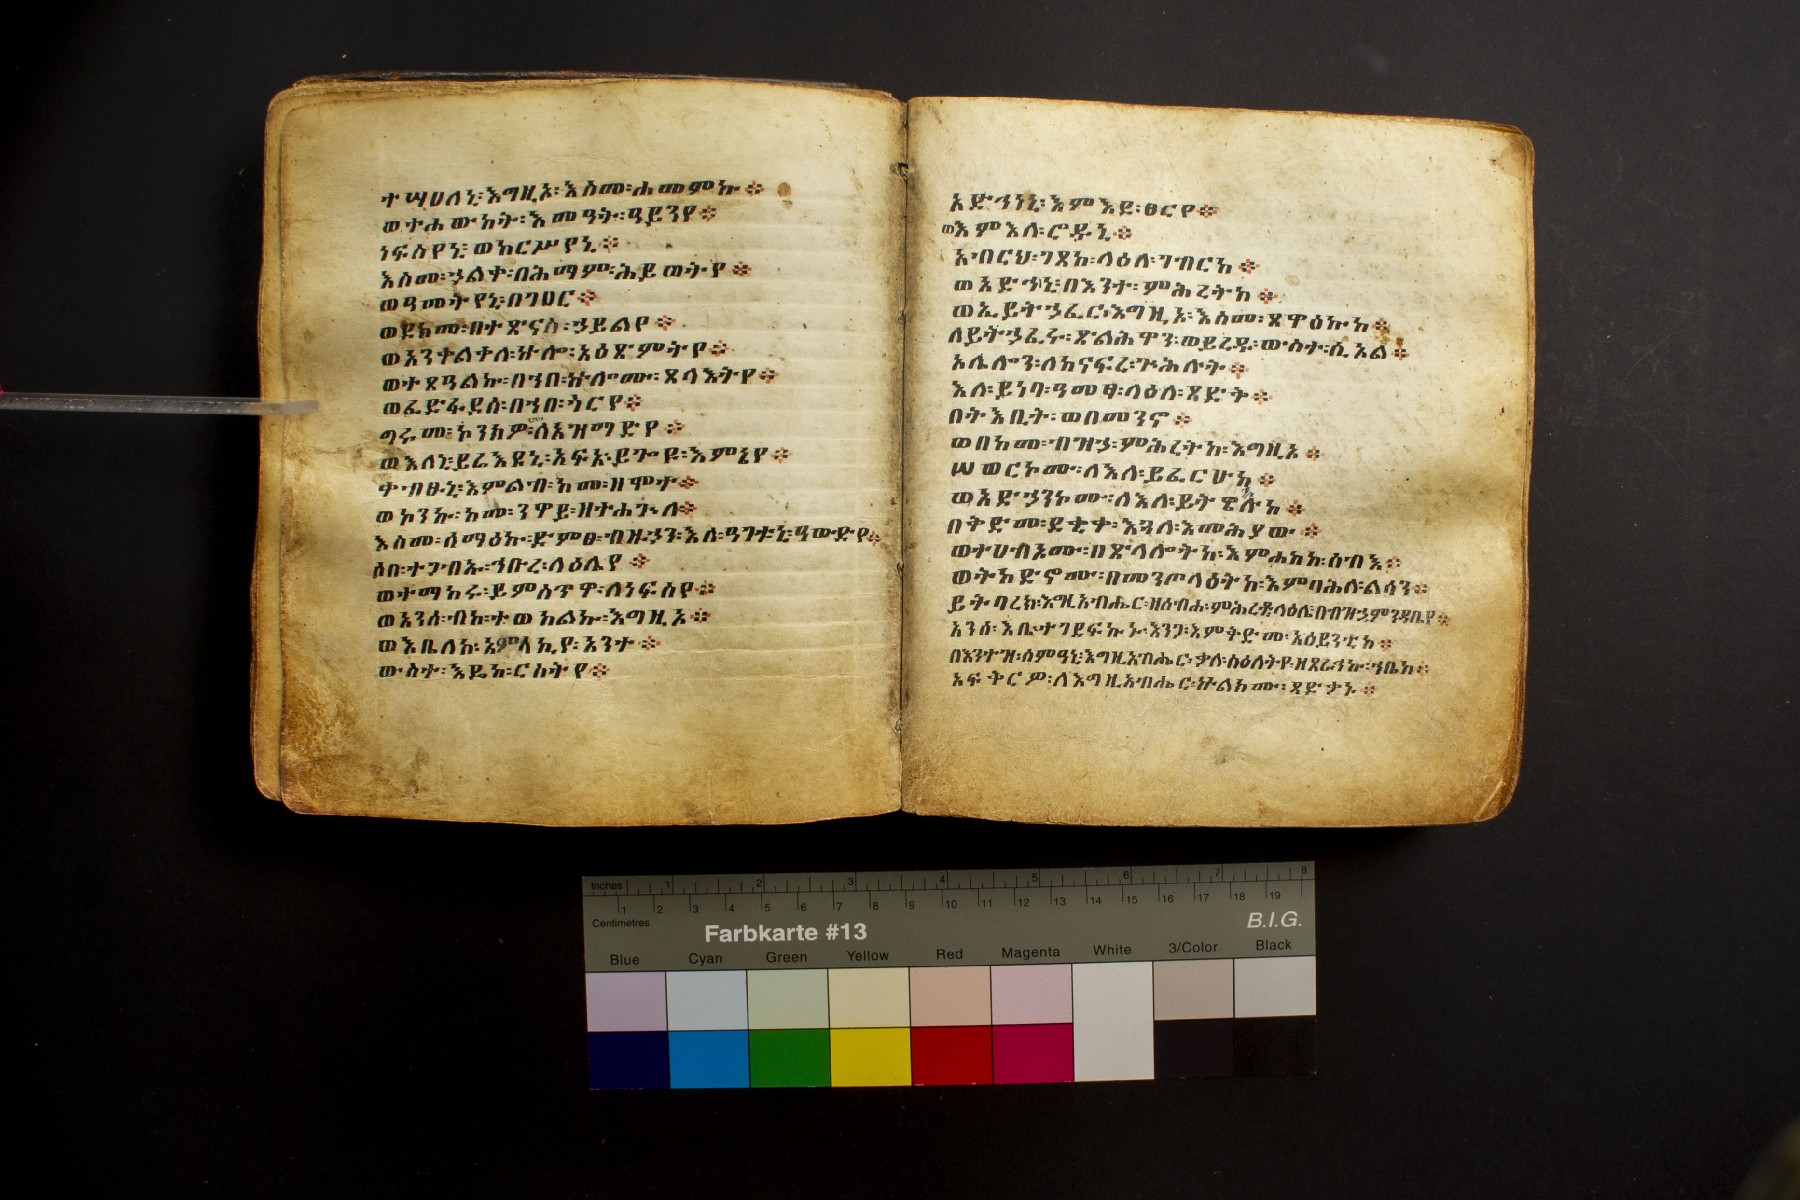 ተሣሀለኒ፡እግዚኦ፡እስመ፡ሐመምኩ፨
ወተሐውከት፡እመዓት፡ዓይንየ፨
ነፍስየኒ፡ወከርሥየኒ፨
እስመ፡ኃልቀ፡በሕማም፡ሕይወትየ፨
ወዓመትየኒ፡በገዐር፨
ወደክመ፡በተጽናስ፡ኃይልየ፨
ወአንቀልቀለ፡ኵሎ፡አዕጽምትየ፨
ወተጸዓልኩ፡በኀበ፡ኵሎሙ፡ጸላእትየ፨
ወፈድፋደሰ፡በኀበ፡ጎርየ፨
ግሩመ፡ኮንክዎ፡ለአዝማድየ፨
ወእለኒ፡ይሬእዩኒ፡አፍአ፡ይጐዩ፡እምኔየ፨
ቀብፁኒ፡እምልብ፡ከመ፡ዘሞተ፨
ወኮንኩ፡ከመ፡ንዋይ፡ዘተሐጕለ፨
እስመ፡ሰማዕኩ፡ድምፀ፡ብዙኃን፡እለ፡ዓገቱኒ፡ዓውድየ፨
ሶበ፡ተጋብኡ፡ኅቡረ፡ላዕሌየ፨
ወተማከሩ፡ይምስጥዋ፡ለነፍስየ፨
ወአንሰ፡ብከ፡ተወከልኩ፡እግዚኦ፨
ወእቤለከ፡አምላኪየ፡አንተ፨
ውስተ፡እዴከ፡ርስትየ፨
አድኅነኒ፡እምእደ፡ፀርየ፨
ወእምእለ፡ሮዱኒ፨
አብርህ፡ገጸከ፡ላዕለ፡ገብርከ፨
ወአድኅነኒ፡በእንተ፡ምሕረትከ፨
ወኢይትኃፈር፡እግዚኦ፡እስመ፡ጸዋዕኩከ፨
ለይትኃፈሩ፡ጽልሕዋን፡ወይረዱ፡ውስተ፡ሲኦል፨
አሌሎን፡ለከናፍረ፡ጕሕሉት፨
እለ፡ይነባ፡ዓመፃ፡ላዕለ፡ጻድቅ፨
በትእቢት፡ወበመንኖ፨
ወበከመ፡ብዝኃ፡ምሕረትከ፡እግዚኦ፨
ሠወርኮሙ፡ለእለ፡ይፈርሁከ፨
ወአድኃንኮሙ፡ለእለ፡ይትዌከሉከ፨
በቅድመ፡ደቂቀ፡እጓለ፡እመሕያው፨
ወተሀብኦሙ፡በጽላሎትከ፡እምሐከከ፡ሰብእ፨
ወትከድኖሙ፡በመንጦላዕትከ፡እምባሕለ፡ልሳን፨
ይትባረክ፡እግዚአብሔር፡ዘሰብሐ፡ምሕረቶ፡ላዕሌየ፡በብዝኃ፡ምንዳቤየ፨
አንሰ፡እቤ፡ተገደፍኩኑ፡እንጋ፡እምቅድመ፡አዕይንቲከ፨
በእንተዝ፡ሰምዓኒ፡እግዚአብሔር፡ቃለ፡ስዕለትየ፡ዘጸራኅኩ፡ኀቤከ፨
አፍቅርዎ፡ለእግዚአብሔር፡ኵልክሙ፡ጻድቃኑ፨
Inches 1 2 3 4 5 6 7 8
1 2 3 4 5 6 7 8 9 10 11 12 13 14 15 16 17 18 19
Centimetres
Farbkarte #13
B.I.G.
Blue Cyan Green Yellow Red Magenta White 3/Color Black